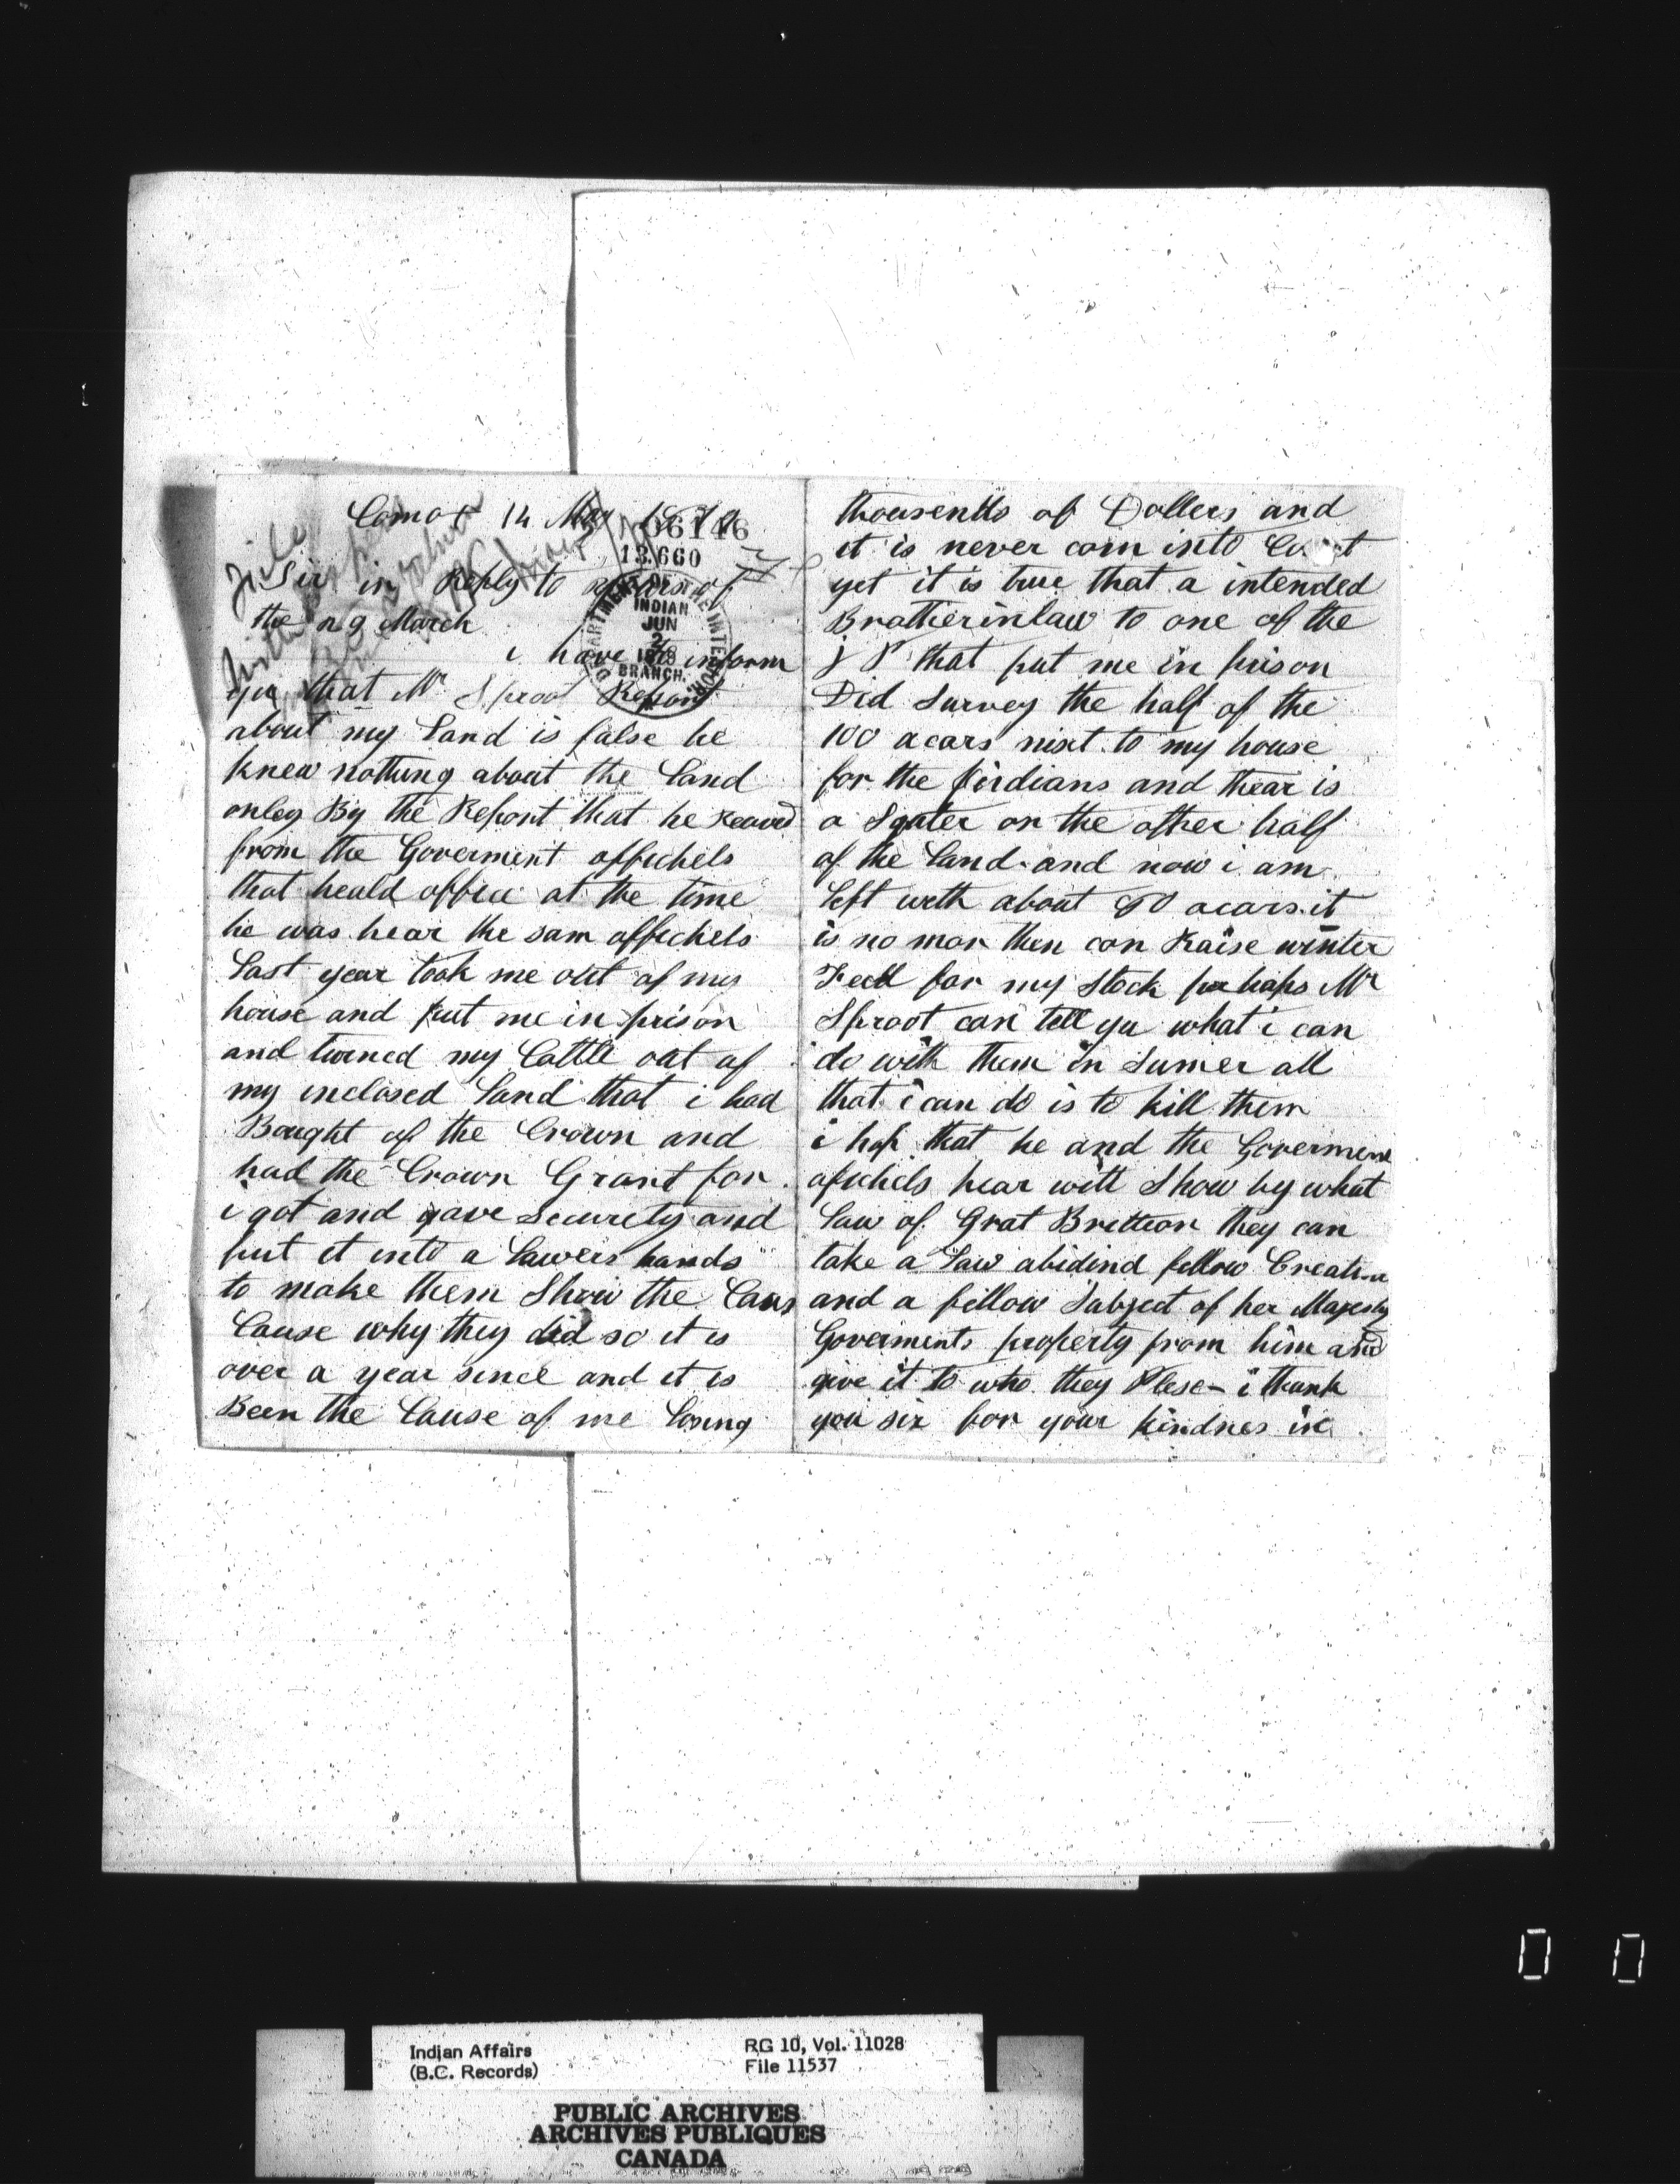 Comox 14 May 1879
06146
13660
DEPARTMENT OF THE INTERIOR
INDIAN
JUN
2
1879
BRANCH.
File
Sir in Reply to yours of
the 29 March
i have to inform
yu that Mr Sproot Report
about my Land is false he
knew nothing about the Land
onley By the Report that he Receved
from the Goverment offichels
that heald office at the time
he was hear the sam offichels
Last year took me out of my
house and put me in prison
and turned my Cattle out of
my inclosed Land that i had
Bought of the Crown and
had the Crown Grant for
i got and gave Security and
put it into a Lawers hands
to make them Show the Caus
Cause why they did so it is
over a year since and it is
Been the Cause of me Losing
thousends of Dollers and
it is never com into Court
yet it is true that a intended
Brotherinlaw to one of the
J P that put me in prison
Did Survey the half of the
100 acars nixt to my house
for the Jindians and thear is
a Sqater on the other half
of the Land and now i am
Left with about 50 acars it
is no mor then can Raise winter
Feed for my Stock perhaps Mr
Sproot can tell yu what i can
do with them in Sumer all
that i can do is to kill them
i hop that he and the Goverment
ofichels hear will Show by what
Law of Grat Brittion they can
take a Law abidind fellow Creature
and a fellow Subject of her Majesty
Goverments property from him and
give it to who they Plese - i thank
you sir for your kindnes in
0 0
Indian Affairs
(B.C. Records)
RG 10, Vol. 11028
File 11537
PUBLIC ARCHIVES
ARCHIVES PUBLIQUES
CANADA